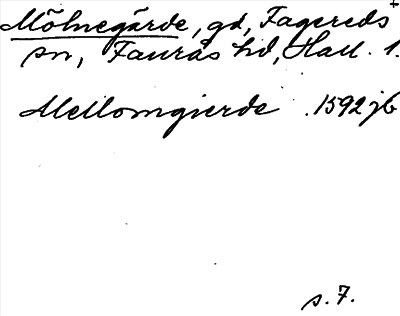 Mölnegärde, gd, Fagereds+
sn, Faurås hd, Hall. l.
Mellomgierde 1592 jb
s. 7.